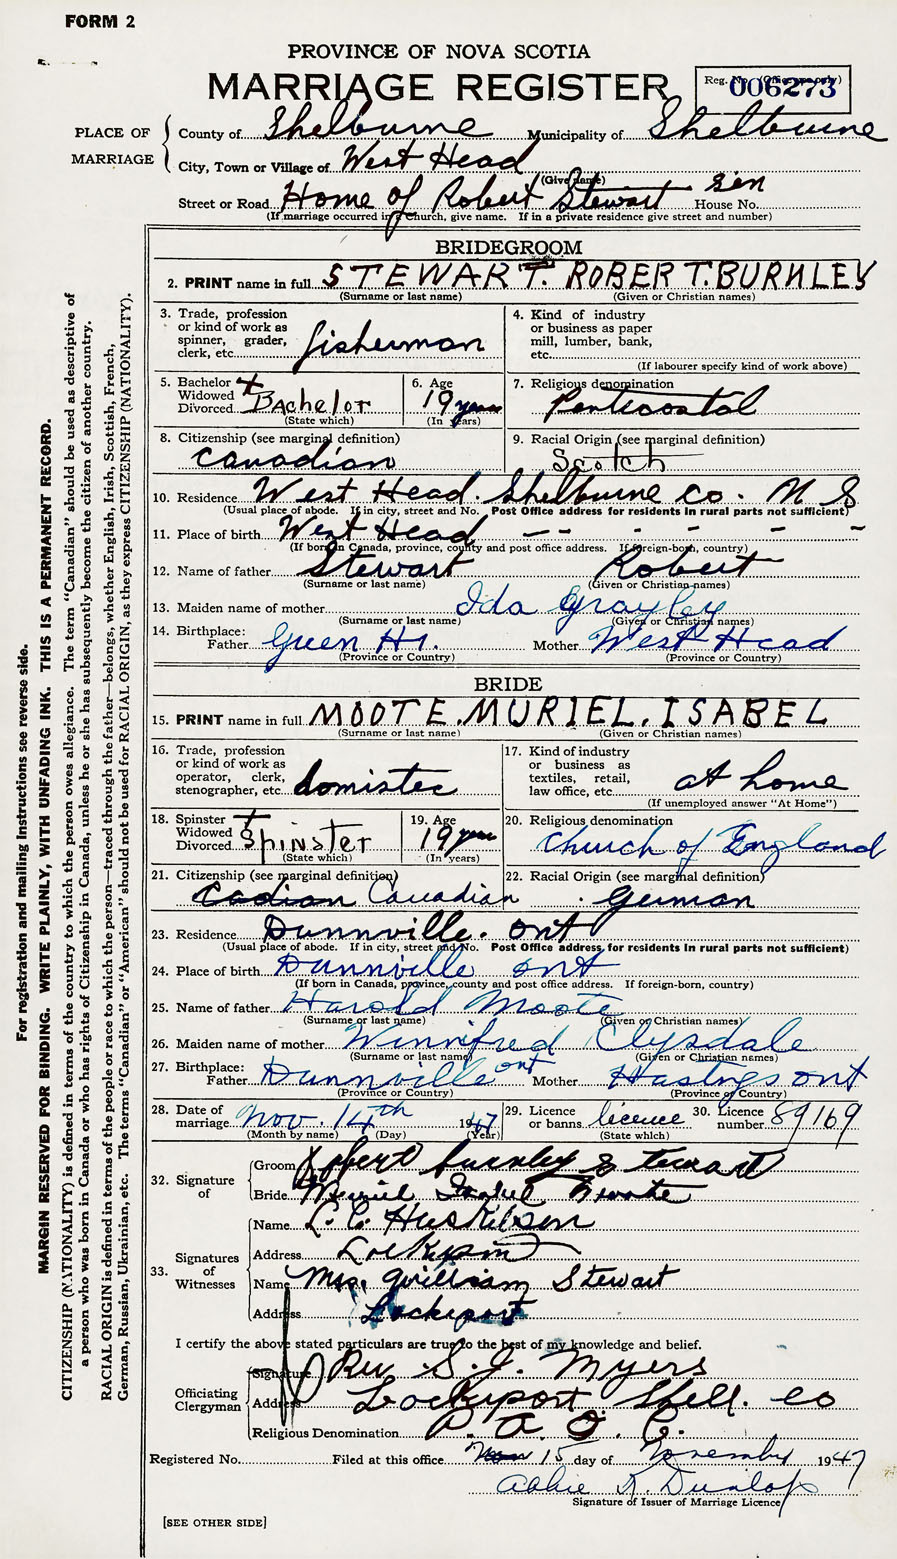 FORM 2
PROVINCE OF NOVA SCOTIA
MARRIAGE REGISTER
Reg. No. (Office use only)
006273
PLACE OF MARRIAGE
County of Shelburne Municipality of Shelburne
City, Town or Village of West Head
(Give name)
Street or Road Home of Robert Stewart Sen House No.
(If marriage occurred in a church, give name. If in a private residence give street and number)
BRIDEGROOM
2. PRINT name in full STEWART. ROBERT. BURNLEY
(Surname or last name) (Given or Christian names)
3. Trade, profession or kind of work as spinner, grader, clerk, etc. fisherman
4. Kind of industry or business as paper mill, lumber, bank, etc.
(If labourer specify kind of work above)
5. Bachelor + Widowed Divorced Bachelor
(State which)
6. Age 19 years
(In years)
7. Religious denomination
Pentecostal
8. Citizenship (see marginal definition)
Canadian
9. Racial Origin (see marginal definition)
Scotch
10. Residence West Head. Shelburne Co. N S
(Usual place of abode. If in city, street and No. Post Office address for residents in rural parts not sufficient)
11. Place of birth West Head — — — — —
(If born in Canada, province, county and post office address. If foreign-born, country)
12. Name of father Stewart Robert
(Surname or last name) (Given or Christian names)
13. Maiden name of mother Ida
(Surname or last name) (Given or Christian names)
14. Birthplace: Father Green H. Mother West Head
(Province or Country) (Province or Country)
BRIDE
15. PRINT name in full MOOTE. MURIEL. ISABEL
(Surname or last name) (Given or Christian names)
16. Trade, profession or kind of work as operator, clerk, stenographer, etc. domistec
17. Kind of industry or business as textiles, retail, law office, etc. at home
(If unemployed answer "At Home")
18. Spinster + Widowed Divorced Spinster
(State which)
19. Age 19 years
(In years)
20. Religious denomination
Church of England
21. Citizenship (see marginal definition)
Cadian Canadian
22. Racial Origin (see marginal definition)
German
23. Residence Dunnville. Ont
(Usual place of abode. If in city, street and No. Post Office address for residents in rural parts not sufficient)
24. Place of birth Dunnville Ont
(If born in Canada, province, county and post office address. If foreign-born, country)
25. Name of father Harold Moote
(Surname or last name) (Given or Christian names)
26. Maiden name of mother Winnifred Clysdale
(Surname or last name) (Given or Christian names)
27. Birthplace: Father Dunnville Ont Mother Hastings Ont
(Province or Country) (Province or Country)
28. Date of marriage Nov. 14th 1947
(Month by name) (Day) (Year)
29. Licence or banns licence
(State which)
30. Licence number 89169
32. Signature of
Groom Robert Burnley Stewart
Bride Muriel Isabel Moote
33. Signatures of Witnesses
Name L. C.
Address Lockeport
Name Mrs. William Stewart
Address Lockeport
I certify the above stated particulars are true to the best of my knowledge and belief.
Officiating Clergyman
Signature Rev S. J. Myers
Address Lockeport Shel. Co
Religious Denomination P. A. O. C.
Registered No. Filed at this office 15 day of November 1947
Abbie K. Dunlop
Signature of Issuer of Marriage Licence
[SEE OTHER SIDE]
For registration and mailing instructions see reverse side.
MARGIN RESERVED FOR BINDING. WRITE PLAINLY, WITH UNFADING INK. THIS IS A PERMANENT RECORD.
CITIZENSHIP (NATIONALITY) is defined in terms of the country to which the person owes allegiance. The term "Canadian" should be used as descriptive of
a person who was born in Canada or who has rights of Citizenship in Canada, unless he or she has subsequently become the citizen of another country.
RACIAL ORIGIN is defined in terms of the people or race to which the person—traced through the father—belongs, whether English, Irish, Scottish, French,
German, Russian, Ukrainian, etc. The terms "Canadian" or "American" should not be used for RACIAL ORIGIN, as they express CITIZENSHIP (NATIONALITY).